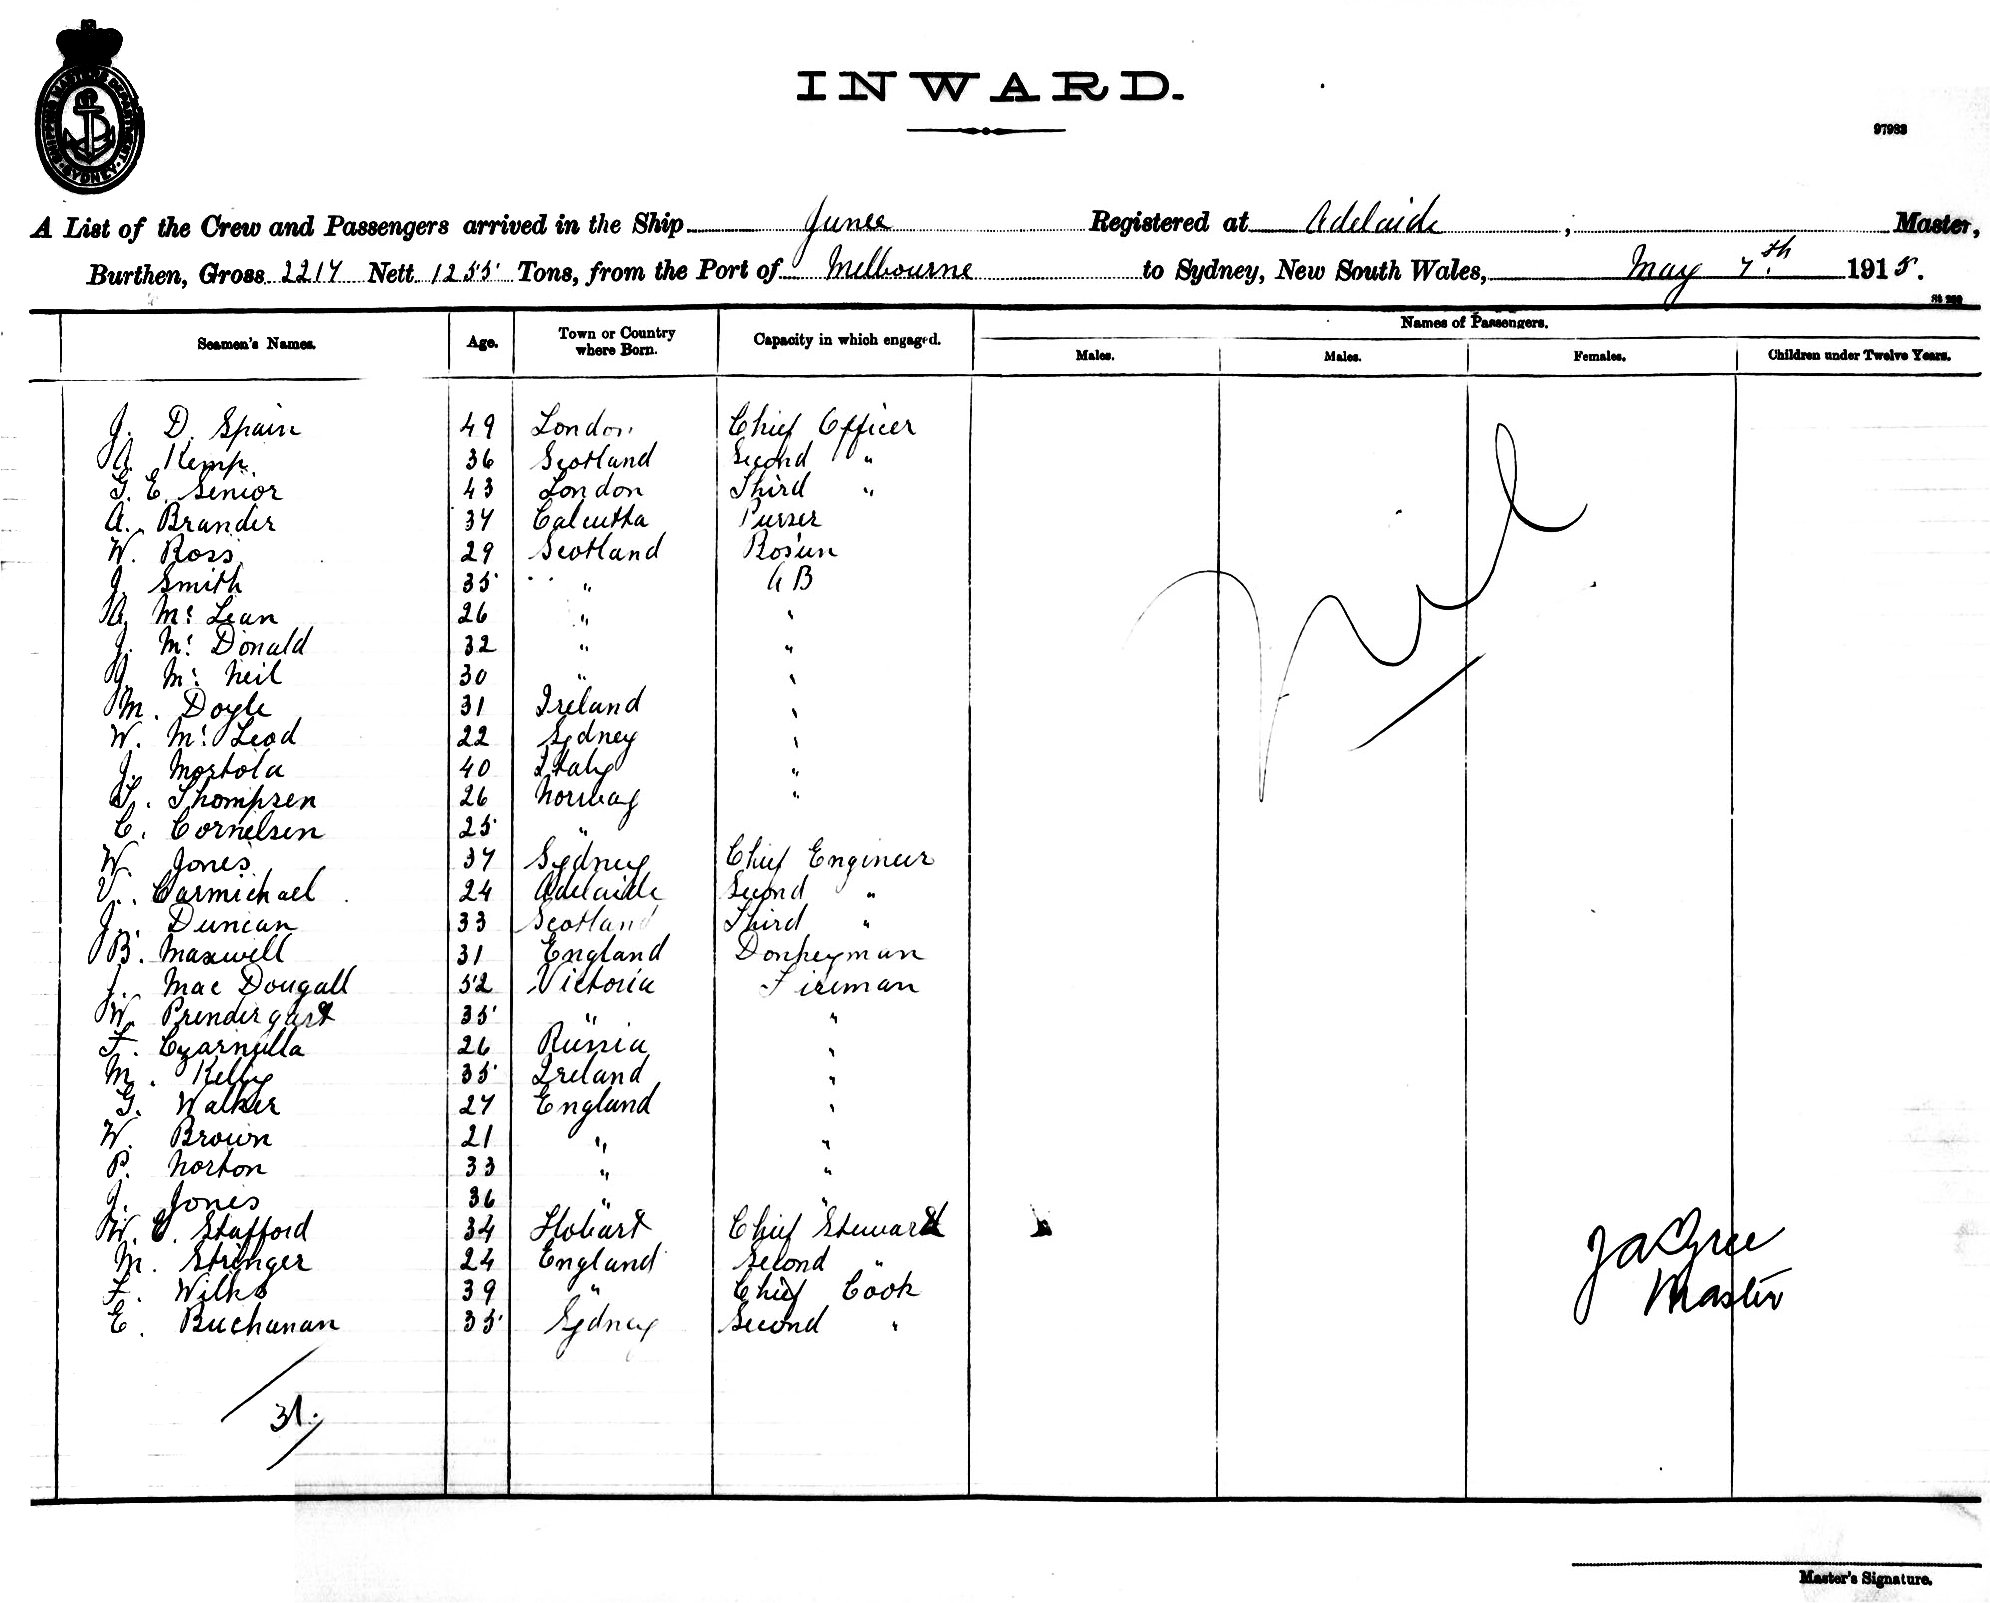 SHIPPING MASTER'S DEPARTMENT SYDNEY
INWARD.
97983
A List of the Crew and Passengers arrived in the Ship Junee Registered at Adelaide, Master,
Burthen, Gross 2217 Nett 1255 Tons, from the Port of Melbourne to Sydney, New South Wales, May 7th 1915.
Seamen's Names. Age. Town or Country where Born. Capacity in which engaged. Names of Passengers.
Males. Males. Females. Children under Twelve Years.
J. D. Spain 49 London Chief Officer
A. Kemp. 36 Scotland Second "
G. E. Senior 43 London Third "
A. Brander 37 Calcutta Purser
W. Ross 29 Scotland Bos'un
J. Smith 35 " AB
A. Mc Lean 26 " "
J. Mc Donald 32 " "
Mc Neil 30 " "
M. Doyle 31 Ireland "
W. Mc Leod 22 Sydney "
J. Mortola 40 Italy "
T. Thompsen 26 Norway "
C. Cornelsen 25 "
W. Jones 37 Sydney Chief Engineer
V. Carmichael 24 Adelaide Second "
J. Duncan 33 Scotland Third "
B. Maxwell 31 England Donkeyman
J. Mac Dougall 52 Victoria Fireman
W. Prendergast 35 " "
F. Czarnulla 26 Russia "
M. Kelly 35 Ireland "
G. Walker 27 England "
W. Brown 21 " "
P. Norton 33 " "
J. Jones 36 " "
W. C. Stafford 34 Hobart Chief Steward
M. Stringer 24 England Second "
F. Wilks 39 " Chief Cook
E. Buchanan 35 Sydney Second "
31.
Nil
Master
Master's Signature.